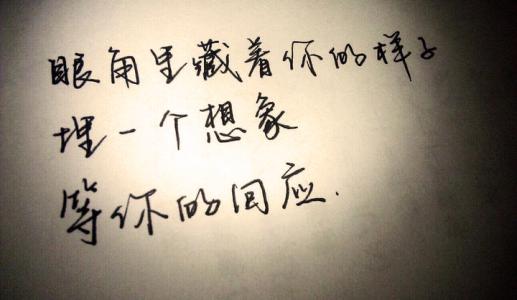 眼角里藏着你的样子
埋一个想象
等你的回应.